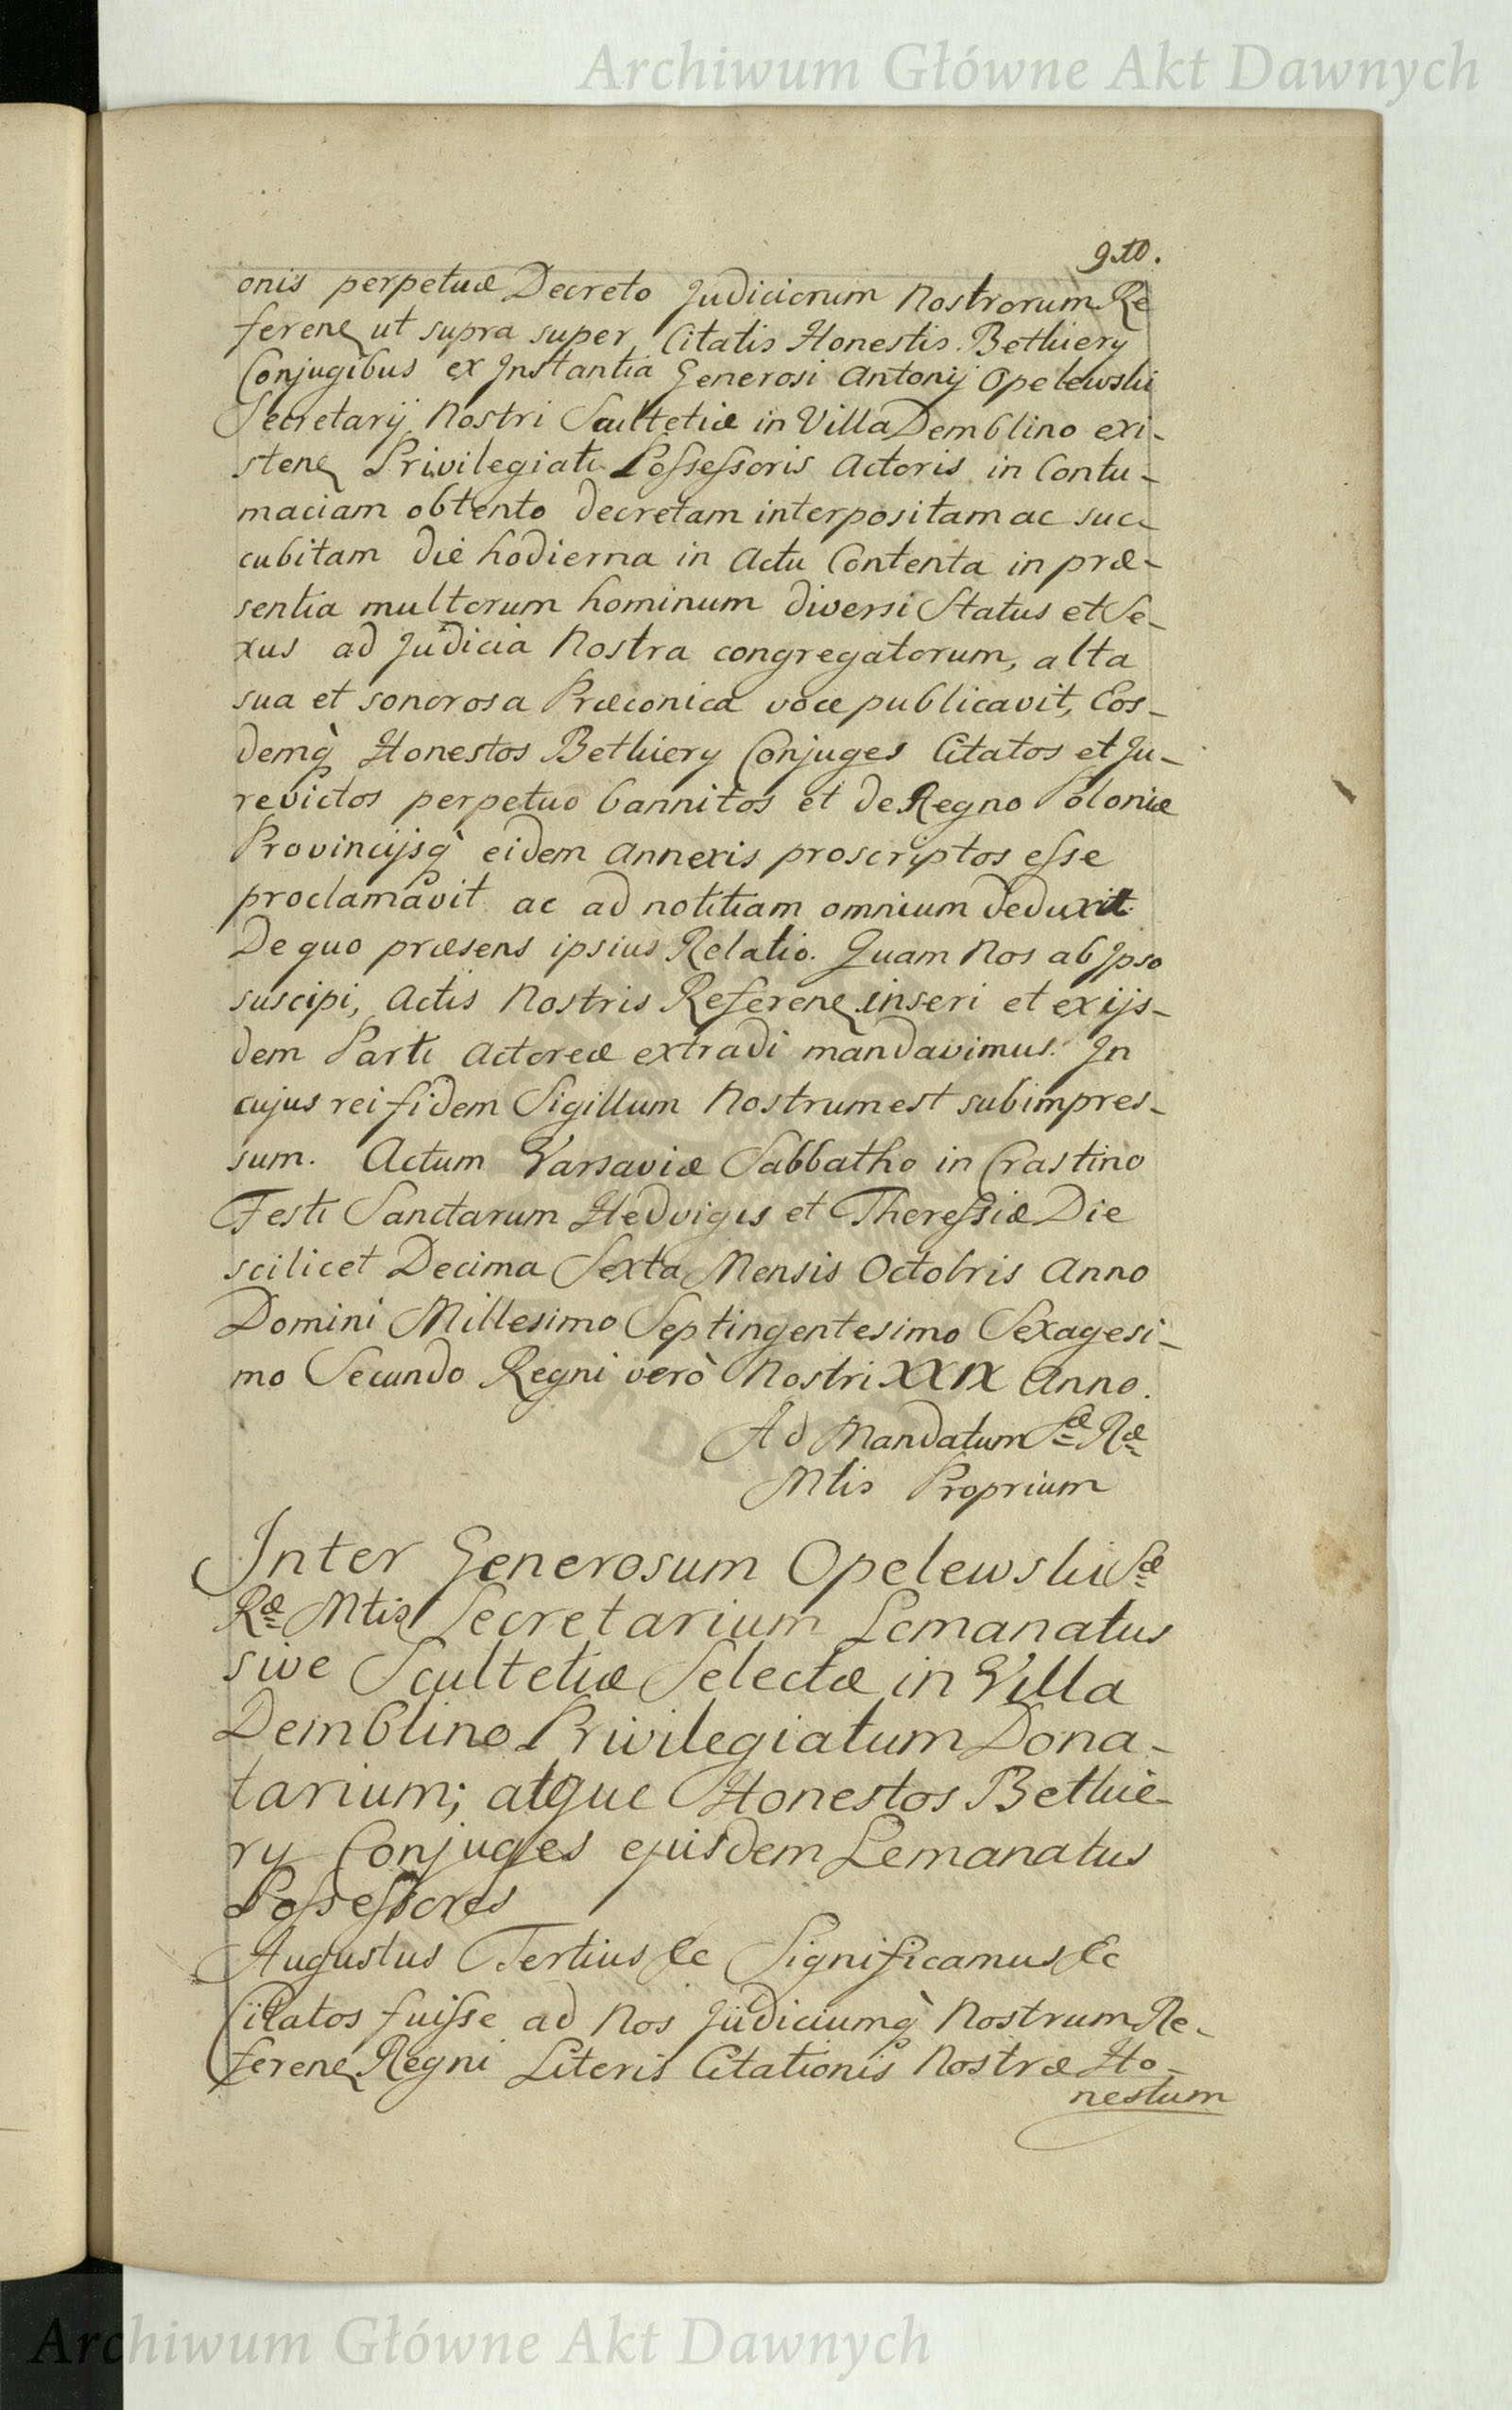 Archiwum Główne Akt Dawnych
onis perpetuæ Decreto Judiciorum Nostrorum Re
feren ut supra super Citatis Honestis Bethiery
Conjugibus ex Instantia Generosi Antonij Opelewski
Secretarij Nostri Scultetiæ in Villa Demblino exi-
sten Privilegiati Possessoris Actoris in Contu-
maciam obtento decretam interpositam ac suc-
cubitam die hodierna in Actu Contenta in præ-
sentia multorum hominum diversi Status et Se-
xus ad Judicia Nostra congregatorum, alta
sua et sonorosa Præconica voce publicavit, Eos-
demq̀ Honestos Bethiery Conjuges Citatos et Ju-
revictos perpetuo bannitos et de Regno Poloniæ
Provincijsq̀ eidem annexis proscriptos esse
proclamavit ac ad notitiam omnium deduxit.
De quo præsens ipsius Relatio. Quam Nos ab Ipso
suscipi, Actis Nostris Referen inseri et ex ijs-
dem Parti Actoreæ extradi mandavimus. In
cujus rei fidem Sigillum Nostrum est subimpres-
sum. Actum Varsaviæ Sabbatho in Crastino
Festi Sanctarum Hedvigis et Theressiæ Die
scilicet Decima Sexta Mensis Octobris Anno
Domini Millesimo Septingentesimo Sexagesi-
mo Secundo Regni verò Nostri XXIX Anno.
Ad Mandatum Sæ Ræ
Mtis Proprium
Inter Generosum Opelewski Sæ
Ræ Mtis Secretarium Lemanatus
sive Scultetiæ Selectæ in Villa
Demblino Privilegiatum Dona-
tarium; atque Honestos Bethie-
ry Conjuges ejusdem Lemanatus
Possessores
Augustus Tertius &c Significamus &c
Citatos fuisse ad Nos Judiciumq̀ Nostrum Re-
feren Regni Literis Citationis Nostræ Ho-
nestum
Archiwum Główne Akt Dawnych